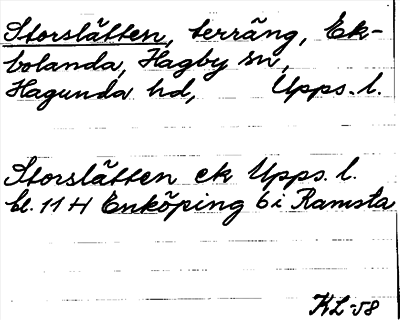 Storslätten, terräng, Ek-
bolanda, Hagby sn,
Hagunda hd, Upps. l.
Storslätten ek Upps. l.
bl. 11 H Enköping 6 i Ramsta
KL-58